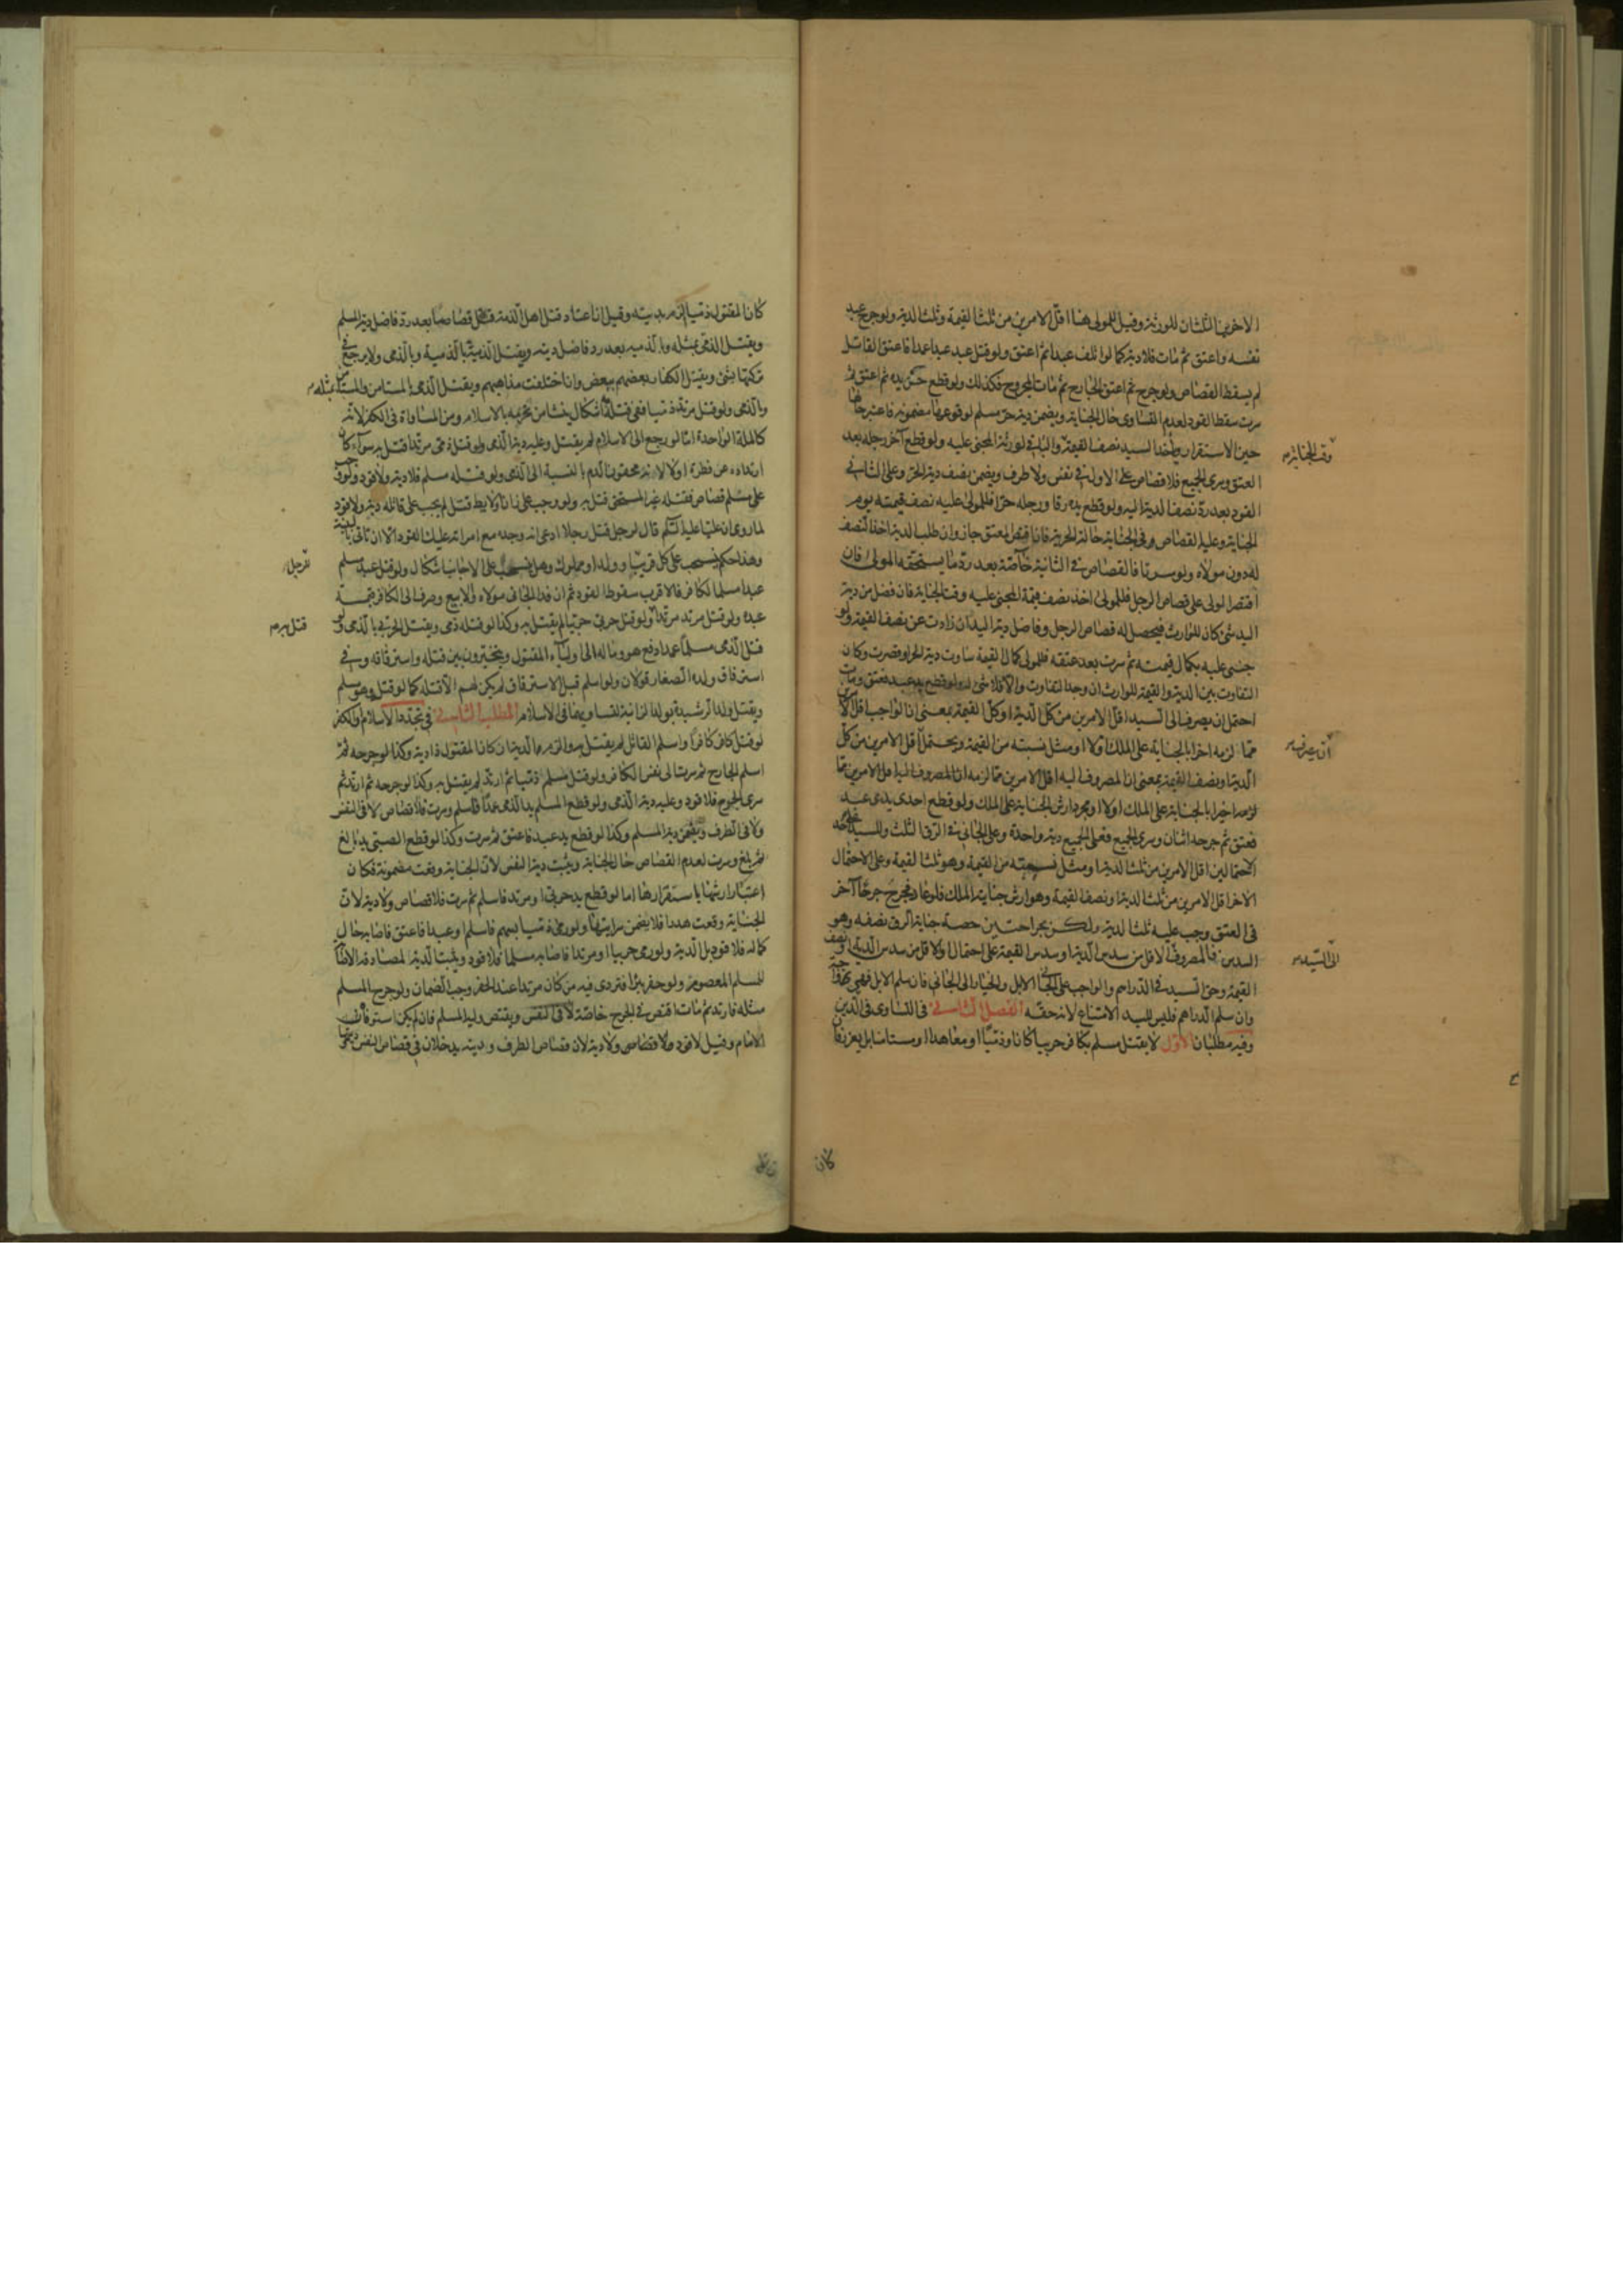 الاخرين الثلثان للورثة وقيل للمولى هنا اقل الامرين من ثلث القيمة وثلث الدية ولو جرح عبد
نفسه واعتق ثم مات فلا دية كما لو اتلف عبدا ثم اعتق ولو قتل عبد عبدا عمدا فاعتق القاتل
لم يسقط القصاص ولو جرح ثم اعتق الجارح ثم مات المجروح فكذلك ولو قطع حر يده ثم اعتق ثم
سرت سقط القود لعدم التساوى حال الجناية ويضمن دية حر مسلم لوقوعها مضمونة فاعتبر حالها
حين الاستقرار ويأخذ السيد نصف القيمة والباقى لورثة المجنى عليه ولو قطع آخر رجله بعد
وقت الجناية
العتق وسرى الجميع فلا قصاص على الاول فى نفس ولا طرف ويضمن نصف دية الحر وعلى الثانى
القود بعد رد نصف الدية اليه ولو قطع يده رقا ورجله حرا فللمولى عليه نصف قيمته يوم
الجناية وعليه القصاص فى الجناية حالة الحرية فان اقتص المعتق جاز وان طلب الدية اخذ النصف
له دون مولاه ولو سرتا فالقصاص فى الثانية خاصة بعد رد ما يستحقه المولى فان
اقتصر الولى على قصاص الرجل فللمولى اخذ نصف قيمة المجنى عليه وقت الجناية فان فضل من دية
اليد شئ كان للوارث فيحصل له قصاص الرجل وفاضل دية اليد ان زادت عن نصف القيمة ولو
جنى عليه بكمال قيمته ثم سرت بعد عتقه فللمولى كمال القيمة ساوت دية الحر او قصرت وكان
التفاوت بين الدية والقيمة للوارث ان وجد التفاوت والا فلا شئ له ولو قطع يد عبد فعتق ومات
احتمل ان يصرف الى السيد اقل الامرين من كل الدية او كل القيمة بمعنى ان الواجب اقل الامرين
مما لزمه اخرا بالجناية على الملك اولا او مثل نسبته من القيمة ويحتمل اقل الامرين من كل
الدية او نصف القيمة بمعنى ان المصروف اليه اقل الامرين مما لزمه
لزمه اخيرا بالجناية على الملك اولا او بمجرد ارش الجناية على الملك ولو قطع احدى يدى عبد
فعتق ثم جرحه اثنان وسرى الجميع فعلى الجميع دية واحدة وعلى الجانى فى الرق الثلث وللسيد على احد
الاحتمالين اقل الامرين من ثلث الدية او مثل نسبته من القيمة وهو ثلث القيمة وعلى الاحتمال
الاخر اقل الامرين من ثلث الدية او نصف القيمة وهو ارش جناية الملك فلو عاد فجرح جرحا آخر
فى العتق وجب عليه ثلث الدية ولكن بجراحتين حصة جناية الرق نصفه وهو
السدس فالمصروف الاقل من سدس الدية او سدس القيمة على احتمال او الاقل من سدس الدية او نصف
الى السيد
القيمة وحق السيد فى الدراهم والواجب على الجانى الابل والخيار الى الجانى فان سلم الابل
وان سلم الدراهم فليس للسيد الامتناع لانه حقه الفصل الثانى فى التساوى فى الدين
وفيه مطلبان الاول لا يقتل مسلم بكافر حربيا كان او ذميا او معاهدا او مستامنا بل يعزر فان
كان
كان المقتول ذميا الزم بديته وقيل ان اعتاد قتل اهل الذمة قتل قصاصا بعد رد فاضل دية المسلم
ويقتل الذمى بمثله وبالذمية بعد رد فاضل ديته ويقتل الذمية بالذمية وبالذمى ولا يرجع فى
تركتها بشئ ويقتل الكفار بعضهم ببعض وان اختلفت مذاهبهم ويقتل الذمى بالمستامن والمستامن بمثله
وبالذمى ولو قتل مرتد ذميا ففى قتله اشكال ينشا من تحرمه بالاسلام ومن المساواة فى الكفر لانه
كالملة الواحدة اما لو رجع الى الاسلام لم يقتل وعليه دية الذمى ولو قتل ذمى مرتدا قتل به سواء كان
ارتداده عن فطرة او لا لانه محقون الدم بالنسبة الى الذمى ولو قتله مسلم فلا دية ولا قود ولو وجب
على مسلم قصاص فقتله غير المستحق قتل به ولو وجب على زان او لايط قتل لم يجب على قاتله دية ولا قود
لما روى ان عليا عليه السلم قال لرجل قتل رجلا ادعى انه وجده مع امراته عليك القود الا ان تاتى ببينة
وهذا حكم ينسحب على كل قريب او ولد او مملوك وهل ينسحب على الاجانب اشكال ولو قتل عبد مسلم
للرجل
عبدا مسلما لكافر فالاقرب سقوط القود ثم ان فدا الجانى مولاه والا بيع وصرف الى الكافر قيمة
عبده ولو قتل مرتد مرتدا ولو قتل حربى حربيا لم يقتل به وكذا لو قتله ذمى ويقتل الحربى بالذمى ولو
قتل به
قتل الذمى مسلما عمدا دفع هو وماله الى اولياء المقتول ويتخيرون بين قتله واسترقاقه وفى
استرقاق ولده الصغار قولان ولو اسلم قبل الاسترقاق لم يكن لهم الا قتله كما لو قتل وهو مسلم
ويقتل ولد الرشيدة بولد الزانية لتساويهما فى الاسلام المطلب الثانى فى تجدد الاسلام والكفر
لو قتل كافر كافرا واسلم القاتل لم يقتل به والزم بالدية ان كان المقتول ذا دية وكذا لو جرحه ثم
اسلم الجارح ثم سرت الى نفس الكافر ولو قتل مسلم ذميا ثم ارتد لم يقتل به وكذا لو جرحه ثم ارتد ثم
سرى الجرح فلا قود وعليه دية الذمى ولو قطع المسلم يد الذمى عمدا فاسلم وسرت فلا قصاص لا فى النفس
ولا فى الطرف ويضمن دية المسلم وكذا لو قطع يد عبد فاعتق ثم سرت وكذا لو قطع الصبى يد بالغ
ثم بلغ وسرت لعدم القصاص حال الجناية ويثبت دية النفس لان الجناية وقعت مضمونة فكان
اعتبار ارشها باستقرارها اما لو قطع يد حربى او مرتد فاسلم ثم سرت فلا قصاص ولا دية لان
الجناية وقعت هدرا فلا يضمن سرايتها ولو رمى ذميا بسهم فاسلم او عبدا فاعتق فاصابه حال
كماله فلا قود بل الدية ولو رمى حربيا او مرتدا فاصابه مسلما فلا قود ويثبت الدية لمصادفة الاصابة
للمسلم المعصوم ولو حفر بئرا فتردى فيه من كان مرتدا عند الحفر وجب الضمان ولو جرح المسلم
مثله فارتد ثم مات اقتص فى الجرح خاصة لا فى النفس ويقتص وليه المسلم فان لم يكن استوفاه
الامام وقيل لا قود ولا قصاص ولا دية لان قصاص الطرف وديته يدخلان فى قصاص النفس وديتها